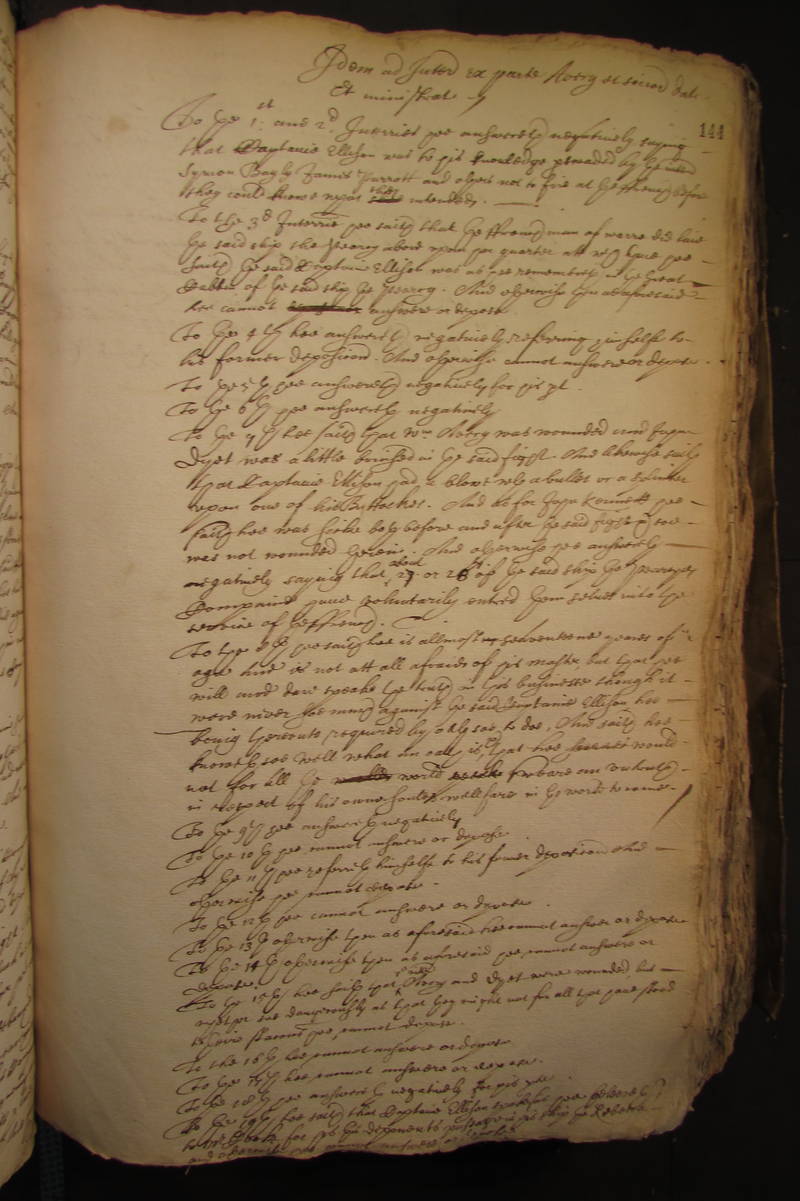 Idem ad Interr ex parte Avery et
Et ministrat
144
To the 1st and 2d Interries hee answereth negatively saying
that Captaine Ellison was to his knowledge perswaded by the
Symon Bayly James Parrott and others not to fire at the ffrenchman before
they could knowe what they intended.
To the 3d Interrie hee saith that the ffrench man of warre did
the said ship the Pearcy above upon her quarter att wch tyme hee
saith the said Captaine Ellison was as hee remembreth in the Great
Cabbin of the said ship the Pearcy. And otherwise then aforesaid
hee cannot answere or depose
To the 4th hee answereth negatively referring himselfe to
his former deposicion. And otherwise cannot answere or depose.
To the 5th hee answereth negatively for his pt.
To the 6th hee answereth negatively
To the 7th hee saith that Wm Avery was wounded and John
Dyet was a little bruised in the said fight. And likewise saith
that Captaine Ellison had a blowe wth a bullet or a splinter
upon one of his Buttockes. And as for John Kennett hee
saith hee was sicke both before and after the said fight &
was not wounded therein. And otherwise hee answereth
negatively saying that about 27 or 28 of the said ship the Pearcyes
Companie have voluntarily entred themselves into the
service of the ffrench.
To the 8th hee saith hee is allmost seaventeene yeares of
age and is not att all afraide of his master, but that hee
will and dare speake the truth in this businesse though it
were never soe much against the said Captaine Ellison hee
being hereunto required by oath soe to doe, And saith hee
knoweth soe well what an oath is, that hee would
not for all the world forsweare an untruth
in respect of his owne soules wellfare in the world to come.
To the 9th hee answereth negatively
To the 10th hee cannot answere or depose.
To the 11th hee referreth himselfe to his former deposicion And
otherwise hee cannot depose.
To the 12th hee cannot answere or depose.
To the 13th otherwise then as aforesaid hee cannot answer or depose
To the 14th otherwise then as aforesaid hee cannot answere or
depose
To the 15th hee saith that the said Avery and Dyet were wounded but
neither soe dangerously as that they might not for all that have stood
hee cannot depose.
To the 16th hee cannot answere or depose
To the 17th hee cannot answere or depose.
To the 18th hee answereth negatively for his pte.
To the 19th hee saith that Captaine Ellison hee beleeveth
to for his the deponents passage in the ship the Rebecca
and otherwise hee cannot answere or depose